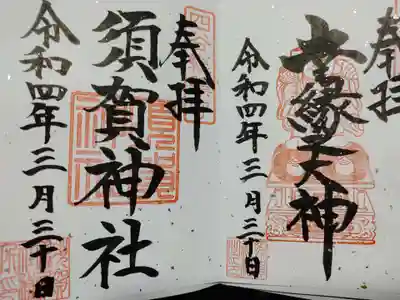 奉拝
良縁天神
令和四年三月三十日
奉拝
須賀神社
令和四年三月三十日